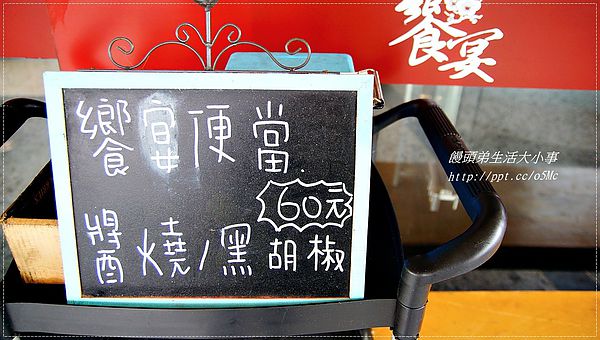 饗宴
饗宴便當
60元
醬燒/黑胡椒
饅頭弟生活大小事
http://ppt.cc/o5Mc